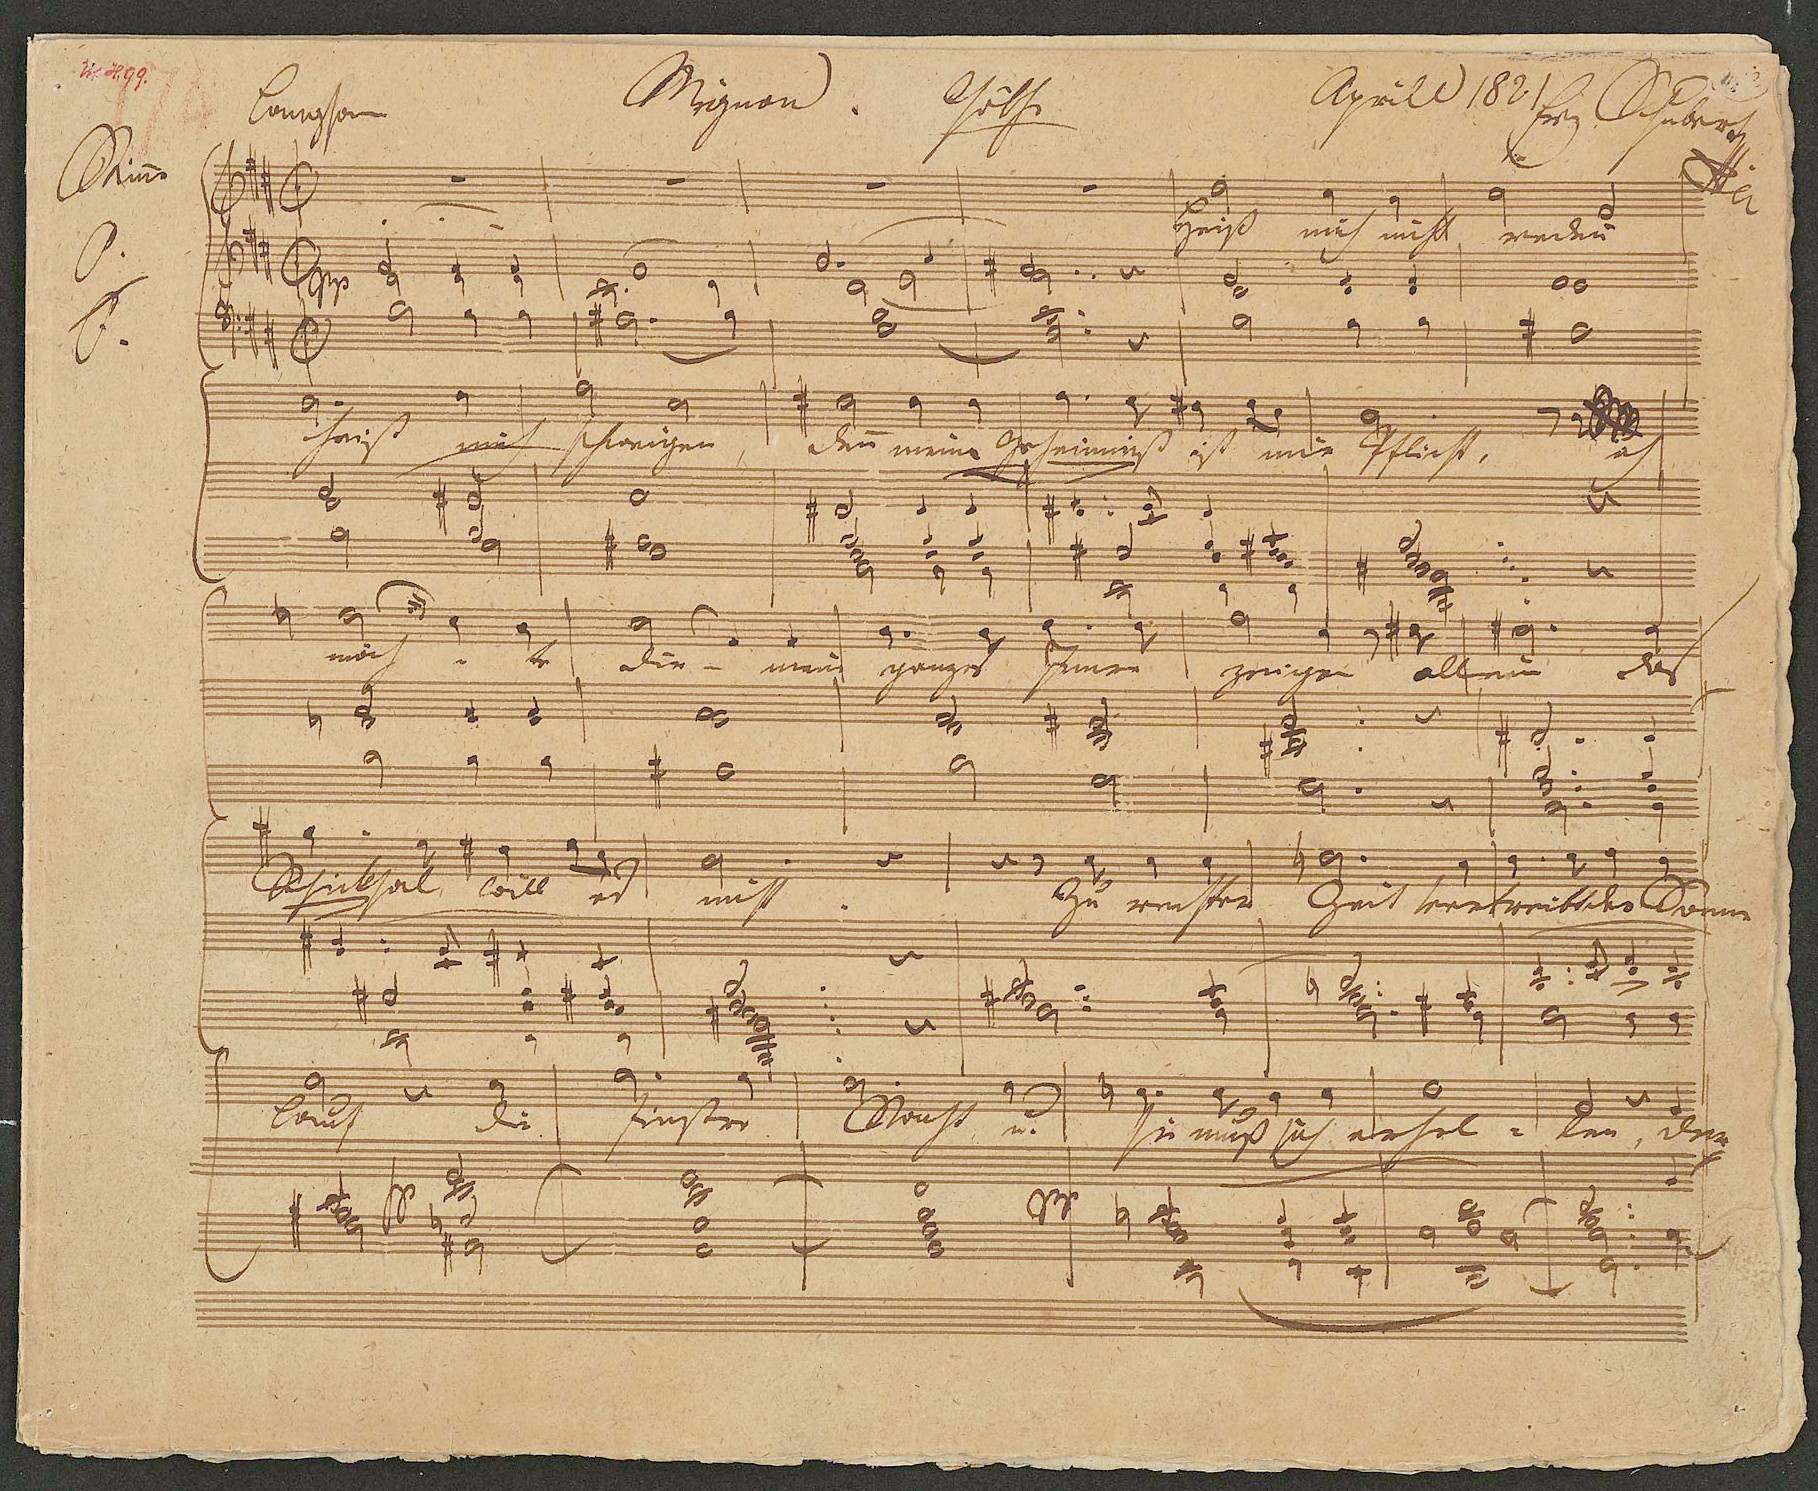 Langsam Mignon. Göthe April 1821 Frz Schubert
pp
Heiß mich nicht reden
heiß mich schweigen, denn mein Geheimniß ist mir Pflicht, ich
möch - te dir - mein ganzes Innre zeigen allein das
Schicksal will es nicht. Zur rechten Zeit vertreibt der Sonne
Lauf die finstre Nacht u. sie muß sich erhel - len, der